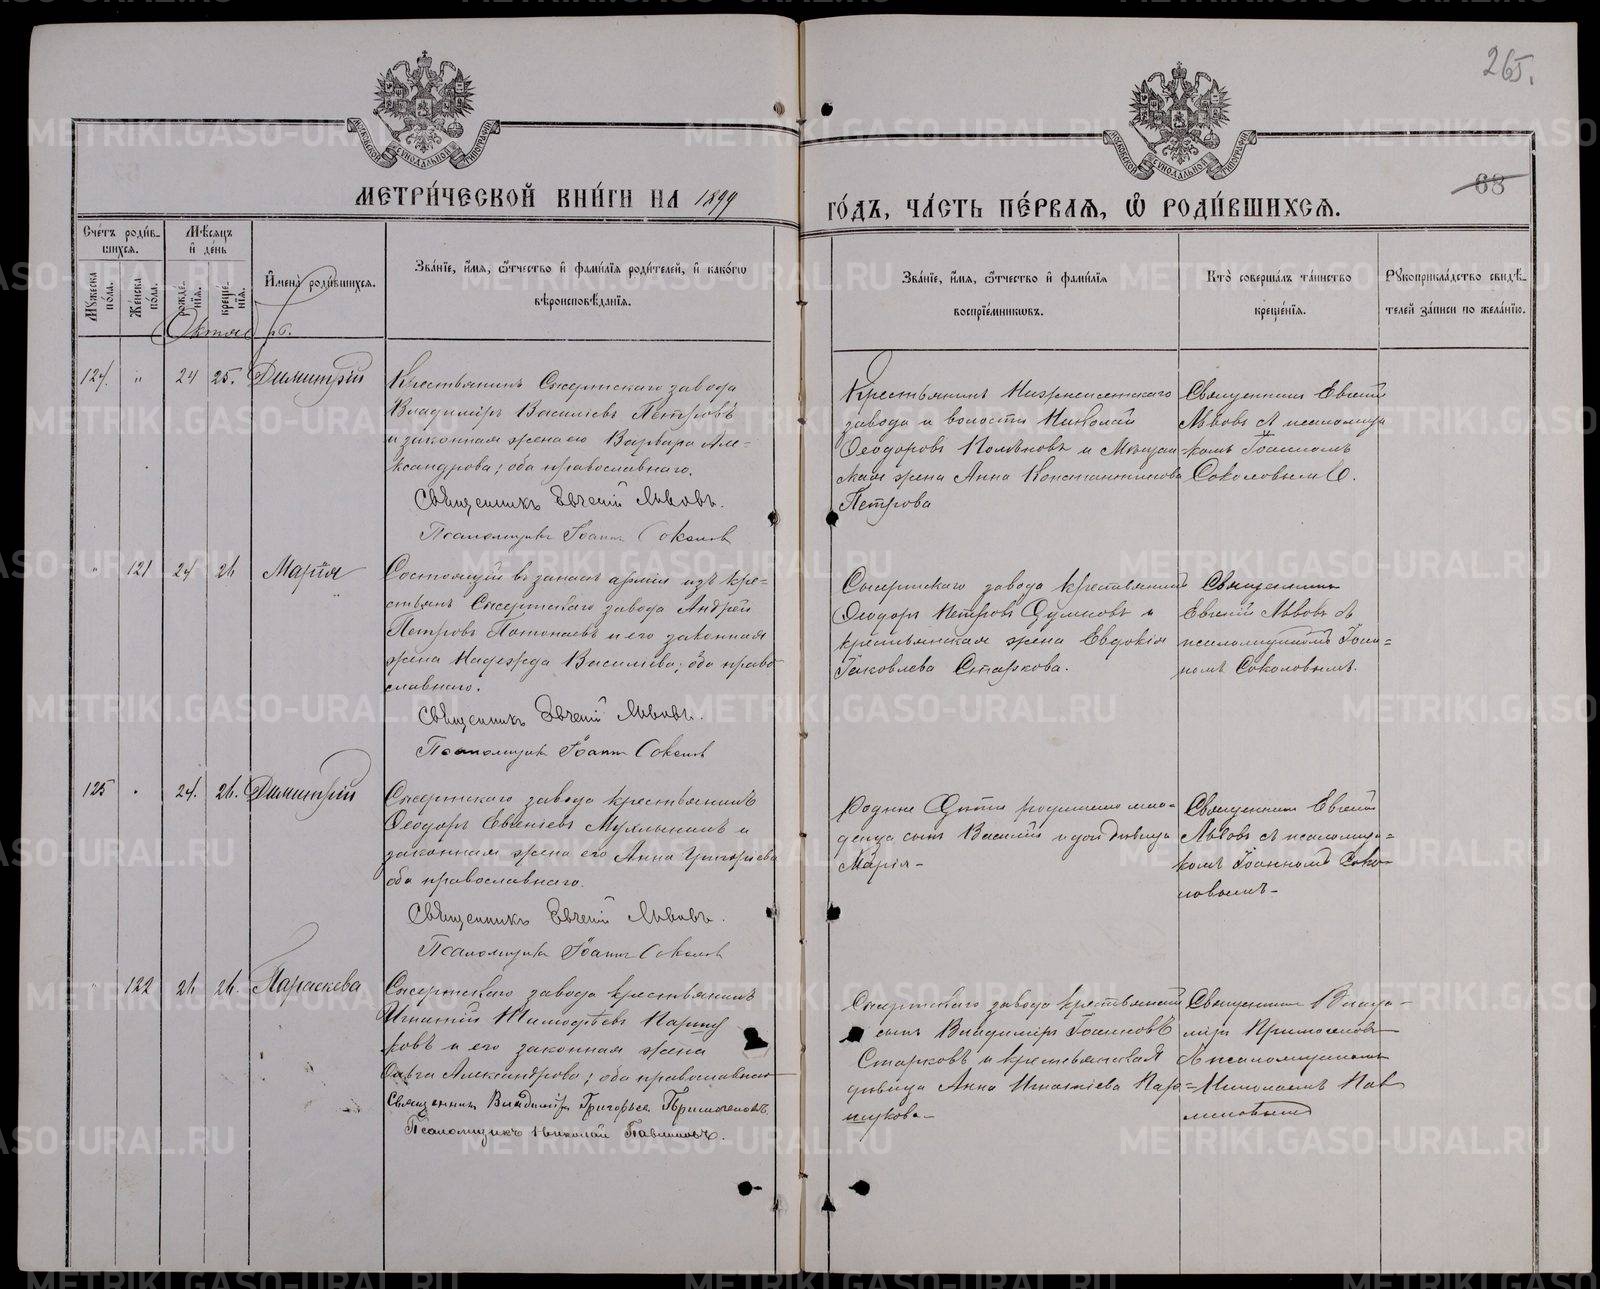 265.
МОСКОВСКОЙ СѴНОДАЛЬНОЙ ТИПОГРАФІИ
МОСКОВСКОЙ СѴНОДАЛЬНОЙ ТИПОГРАФІИ
68
МЕТРИ́ЧЕСКОЙ КНИ́ГИ НА 1899
ГО́ДЪ, ЧА́СТЬ ПЕ́РВАЯ, Ѡ РОДИ́ВШИХСЯ.
Сче́тъ роди́в-
шихся.
Мужеска пола.
Женска пола.
Мѣсяцъ
и де́нь
рожде-
нія.
креще-
нія.
Имена̀ роди́вшихся.
Зва́ніе, и́мя, ѻ́тчество и фами́лія роди́телей, и како́гѡ
вѣроисповѣ́данія.
Зва́ніе, и́мя, ѻ́тчество и фами́лія
воспріе́мникѡвъ.
Кто̀ соверша́лъ та́инство
креще́нія.
Рукоприкла́дство свидѣ́-
телей за́писи по жела́нію.
Октябрь.
124. " 24 25. Димитрій
Крестьянинъ Сысертскаго завода
Владиміръ Василіевъ Петровъ
и законная жена его Варвара Але-
ксандрова; оба православнаго.
Священникъ Евгеній Львовъ.
Псаломщикъ Іоаннъ Соколовъ
Крестьянинъ
завода и волости Николай
Ѳеодоровъ и Мѣщан-
ская жена Анна Константинова
Петрова
Священникъ Евгеній
Львовъ съ псаломщи-
комъ Іоанномъ
Соколовымъ.
" 121 24 26 Марія
Состоящій въ запасѣ арміи изъ кре-
стьянъ Сысертскаго завода Андрей
Петровъ и его законная
жена Надежда Василіева; оба право-
славнаго.
Священникъ Евгеній Львовъ.
Псаломщикъ Іоаннъ Соколовъ
Сысертскаго завода крестьянинъ
Ѳеодоръ Петровъ и
крестьянская жена Евдокія
Іаковлева Старкова.
Священникъ
Евгеній Львовъ съ
псаломщикомъ Іоан-
номъ Соколовымъ.
125 " 24. 26. Димитрій
Сысертскаго завода крестьянинъ
Ѳеодоръ Евгеніевъ и
законная жена его Анна Григоріева
оба православнаго.
Священникъ Евгеній Львовъ.
Псаломщикъ Іоаннъ Соколовъ
Родные дѣти родителей мла-
денца сынъ Василій и дочь дѣвица
Марія-
Священникъ Евгеній
Львовъ съ псаломщи-
комъ Іоанномъ Соко-
ловымъ-
" 122 26 26. Параскева
Сысертскаго завода крестьянинъ
Игнатій Тимоѳеевъ
и его законная жена
Ольга Александрова; оба православнаго
Священникъ Владиміръ Григорьевъ
Псаломщикъ Николай Павлиновъ.
Сысертскаго завода крестьянскій
сынъ Владиміръ Іоанновъ
Старковъ и крестьянская
дѣвица Анна Игнатіева
Священникъ Влади-
міръ
съ псаломщикомъ
Николаемъ Пав-
линовымъ